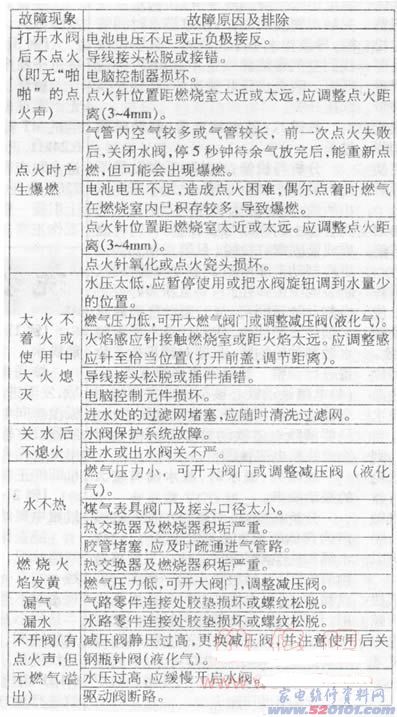 故障现象 故障原因及排除
打开水阀后不点火(即无“啪啪”的点火声)
电池电压不足或正负极接反。
导线接头松脱或接错。
电脑控制器损坏。
点火针位置距燃烧室太近或太远,应调整点火距
离(3~4mm)。
点火时产生爆燃
气管内空气较多或气管较长，前一次点火失败
后,关闭水阀,停5秒钟待余气放完后,能重新点
燃,但可能会出现爆燃。
电池电压不足,造成点火困难,偶尔点着时燃气
在燃烧室内已积存较多,导致爆燃。
点火针位置距燃烧室太近或太远。应调整点火距
离(3~4mm)。
点火针氧化或点火瓷头损坏.
大火不着火或使用中大火熄灭
水压太低,应暂停使用或把水阀旋钮调到水量少
的位置。
燃气压力低,可开大燃气阀门或调整减压阀(液化气)。
火焰感应针接触燃烧室或距火焰太远。应调整感
应针至恰当位置(打开前盖,调节距离)。
导线接头松脱或插件插错。
电脑控制元件损坏.
进水处的过滤网堵塞,应随时清洗过滤网。
关水后不熄火
水阀保护系统故障。
进水或出水阀关不严。
水不热
燃气压力小，可开大阀门或调整减压阀(液化
气)。
煤气表具阀门及接头口径太小。
热交换器及燃烧器积垢严重。
胶管堵塞,应及时疏通进气管路。
燃烧火焰发黄
热交换器及燃烧器积垢严重。
燃气压力低,可开大阀门,调整减压阀。
漏气 气路零件连接处胶垫损坏或螺纹松脱。
漏水 水路零件连接处胶垫损坏或螺纹松脱。
不开阀(有点火声,但无燃气溢出)
减压阀静压过高,更换减压阀,并注意使用后关
钢瓶针阀(液化气)。
水压过高,应缓慢开启水阀。
驱动阀断路.
家电维修资料网
www.520101.com